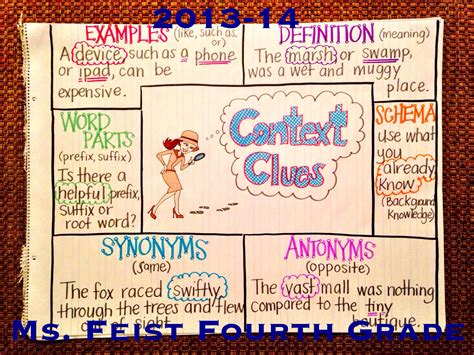 2013-14
EXAMPLES (like, such as, or)
A device, such as a phone
or ipad, can be
expensive.
DEFINITION (meaning)
The marsh or swamp,
was a wet and muggy
place.
WORD
PARTS
(prefix, suffix)
Is there a
helpful prefix,
suffix or
root word?
Context
Clues
SCHEMA
Use what
you
already
know
(Background
Knowledge)
SYNONYMS
(same)
The fox raced swiftly
through the trees and flew
out of sight.
ANTONYMS
(opposite)
The vast mall was nothing
compared to the tiny
boutique.
Ms. Feist Fourth Grade